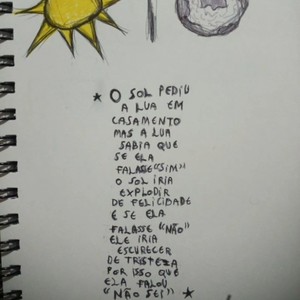 O SOL PEDIU
A LUA EM
CASAMENTO
MAS A LUA
SABIA QUE
SE ELA
FALASSE "SIM"
O SOL IRIA
EXPLODIR
DE FELICIDADE
E SE ELA
FALASSE "NÃO"
ELE IRIA
ESCURECER
DE TRISTEZA
POR ISSO QUE
ELA FALOU
"NÃO SEI"